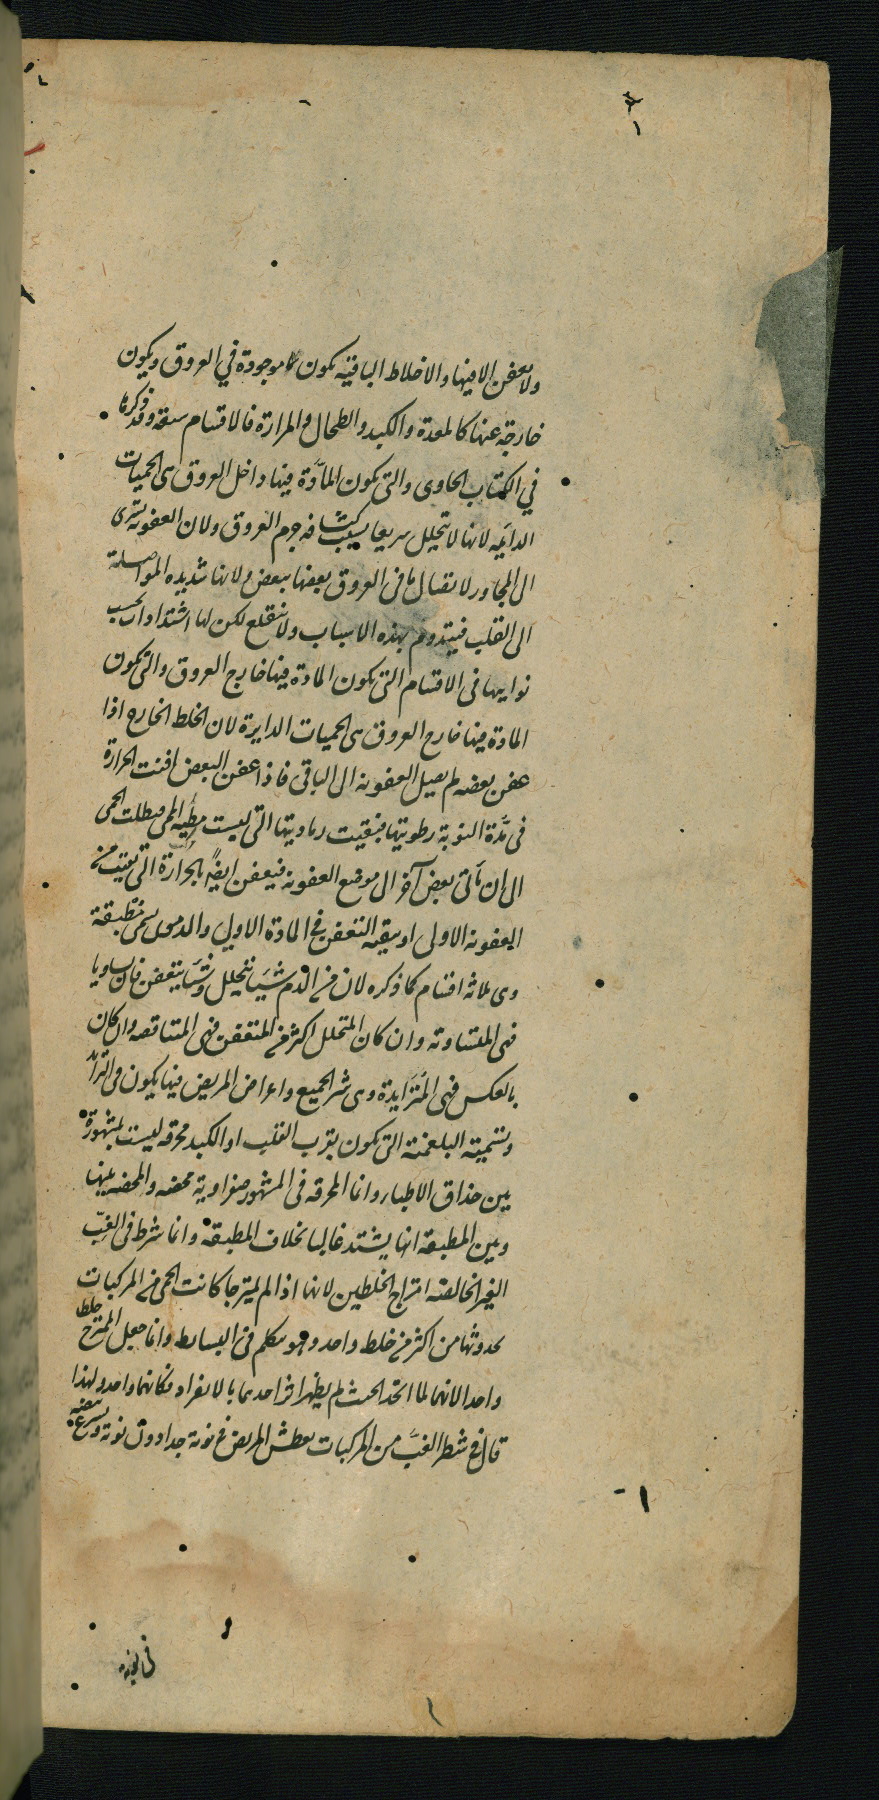 ولا يعفن الا فيها والاخلاط الباقية تكون موجودة في العروق ويكون
خارجة عنها كالمعدة والكبد والطحال والمرارة فالاقسام سبعة وقد ذكرنا
في الكتاب الحاوى والتى تكون المادّة فيها داخل العروق هى الحميات
الدائمه لانها لا تتحلل سريعا بسبب كثافه جرم العروق ولان العفونه تسرى
الى المجاور لاتصال ما فى العروق بعضها ببعض ولانها شديده المواصلة
الى القلب فيتدوم بهذه الاسباب ولا تنقلع لكن لها اشتدادات بحسب
نوايبها فى الاقسام التى تكون المادة فيها خارج العروق والتى تكون
المادة فيها خارج العروق هى الحميات الدايرة لان الخلط الخارج اذا
عفن بعضه لم يصل العفونه الى الباقى فاذا عفن البعض افنت الحرارة
فى مدّة النوبة رطوبتها فبقيت رماديتها التى ليست مطية للحمى فبطلت الحمى
الى ان يأتى بعض آخر الى موضع العفونه فيعفن ايضًا بالحرارة التى بقيت من
العفونه الاولى او ببقية التعفن في المادة الاولى والدموى يسمى مطبقة
وهى ثلاثه اقسام كما ذكره لان من الدم شيئا يتحلل وشيئا يتعفن فان تساويا
فهى المتساوته وان كان المتحلل اكثر من المتعفن فهى المتناقصه وان كان
بالعكس فهى المتزايدة وهى شر الجميع واعراض المريض فيها يكون فى التزايد
وتسميته البلغمية التى تكون بقرب القلب او الكبد محرقه ليست بمشهورة
بين حذاق الاطباء وانما المحرقه فى المشهور صفراوية محضه والمحضه بينها
وبين المطبقه انها يشتد غالبا بخلاف المطبقة وانما شرط فى الغبّ
الغير الخالصه امتزاج الخلطين لانها اذا لم يمتزجا كانت الحمى من المركبات
بحدوثها من اكثر من خلط واحد وهو يتكلم فى البسايط وانما جعل الممتزج خلطا
واحدا لانهما لما اتحدا بحيث لم يظهر اثر احدهما بالانفراد فكانهما واحد ولهذا
قال في شطر الغبّ من المركبات يعطش المريض في نوبة جدا دون نوبة ويسرع نبضه
فى نوبة